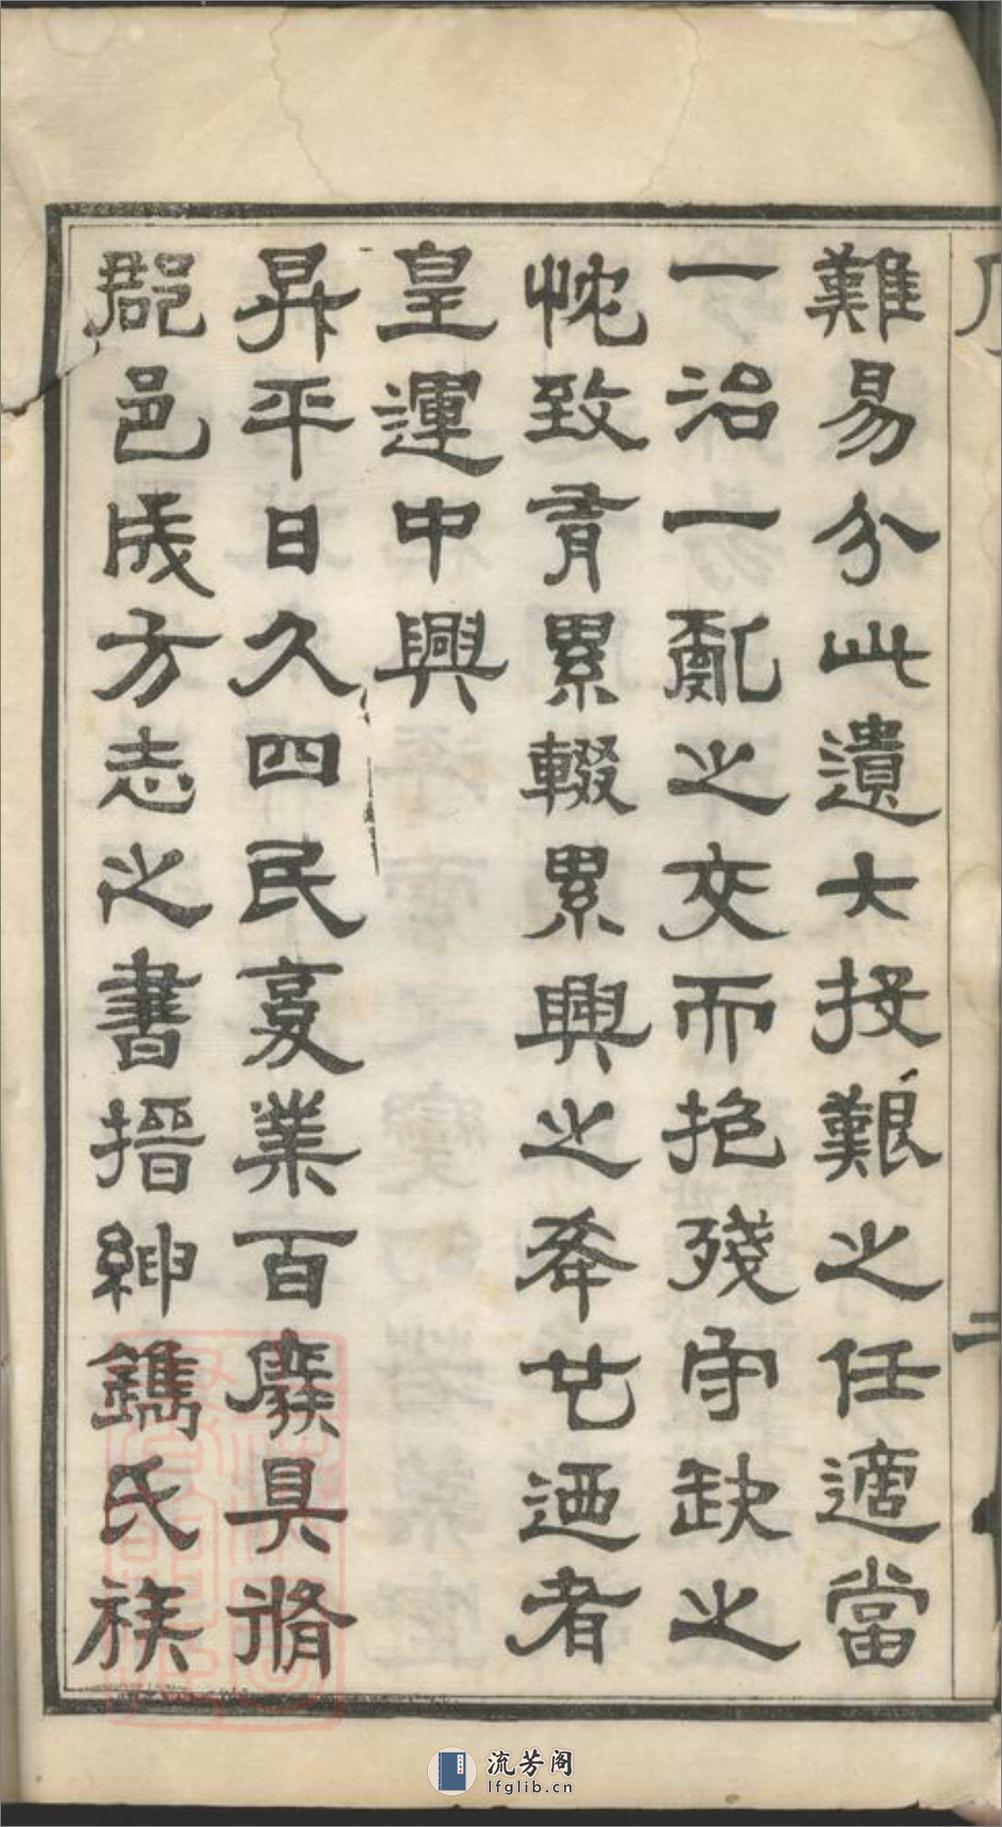 難易分此遺大投艱之任適當
一治一亂之交而抱殘守缺之
忱致有累輟累興之舉廿迺者
皇運中興
昇平日久四民复業百廢具脩
郡邑成方志之書搢紳鐫氏族
二
流芳阁
lfglib.cn